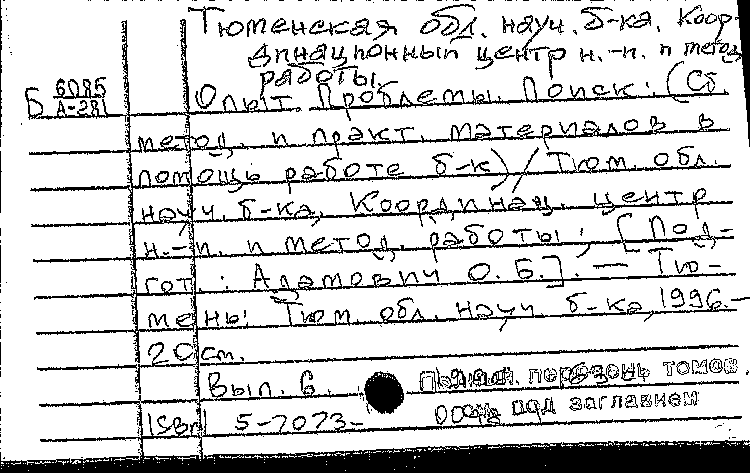 Тюменская обл. науч. б-ка. Коор-
динационный центр н.-и. и метод.
работы.
Б 6085
А-281
Опыт. Проблемы. Поиск: (Сб.
метод. и практ. материалов в
помощь работе б-к) / Тюм. обл.
науч. б-ка, Координац. центр
н.-и. и метод. работы; [Под-
гот.: Адамович О. Б.]. — Тю-
мень: Тюм. обл. науч. б-ка, 1996.—
20 см.
Вып. 6.
перечень томов.
под заглавием
ISBN 5-7073-